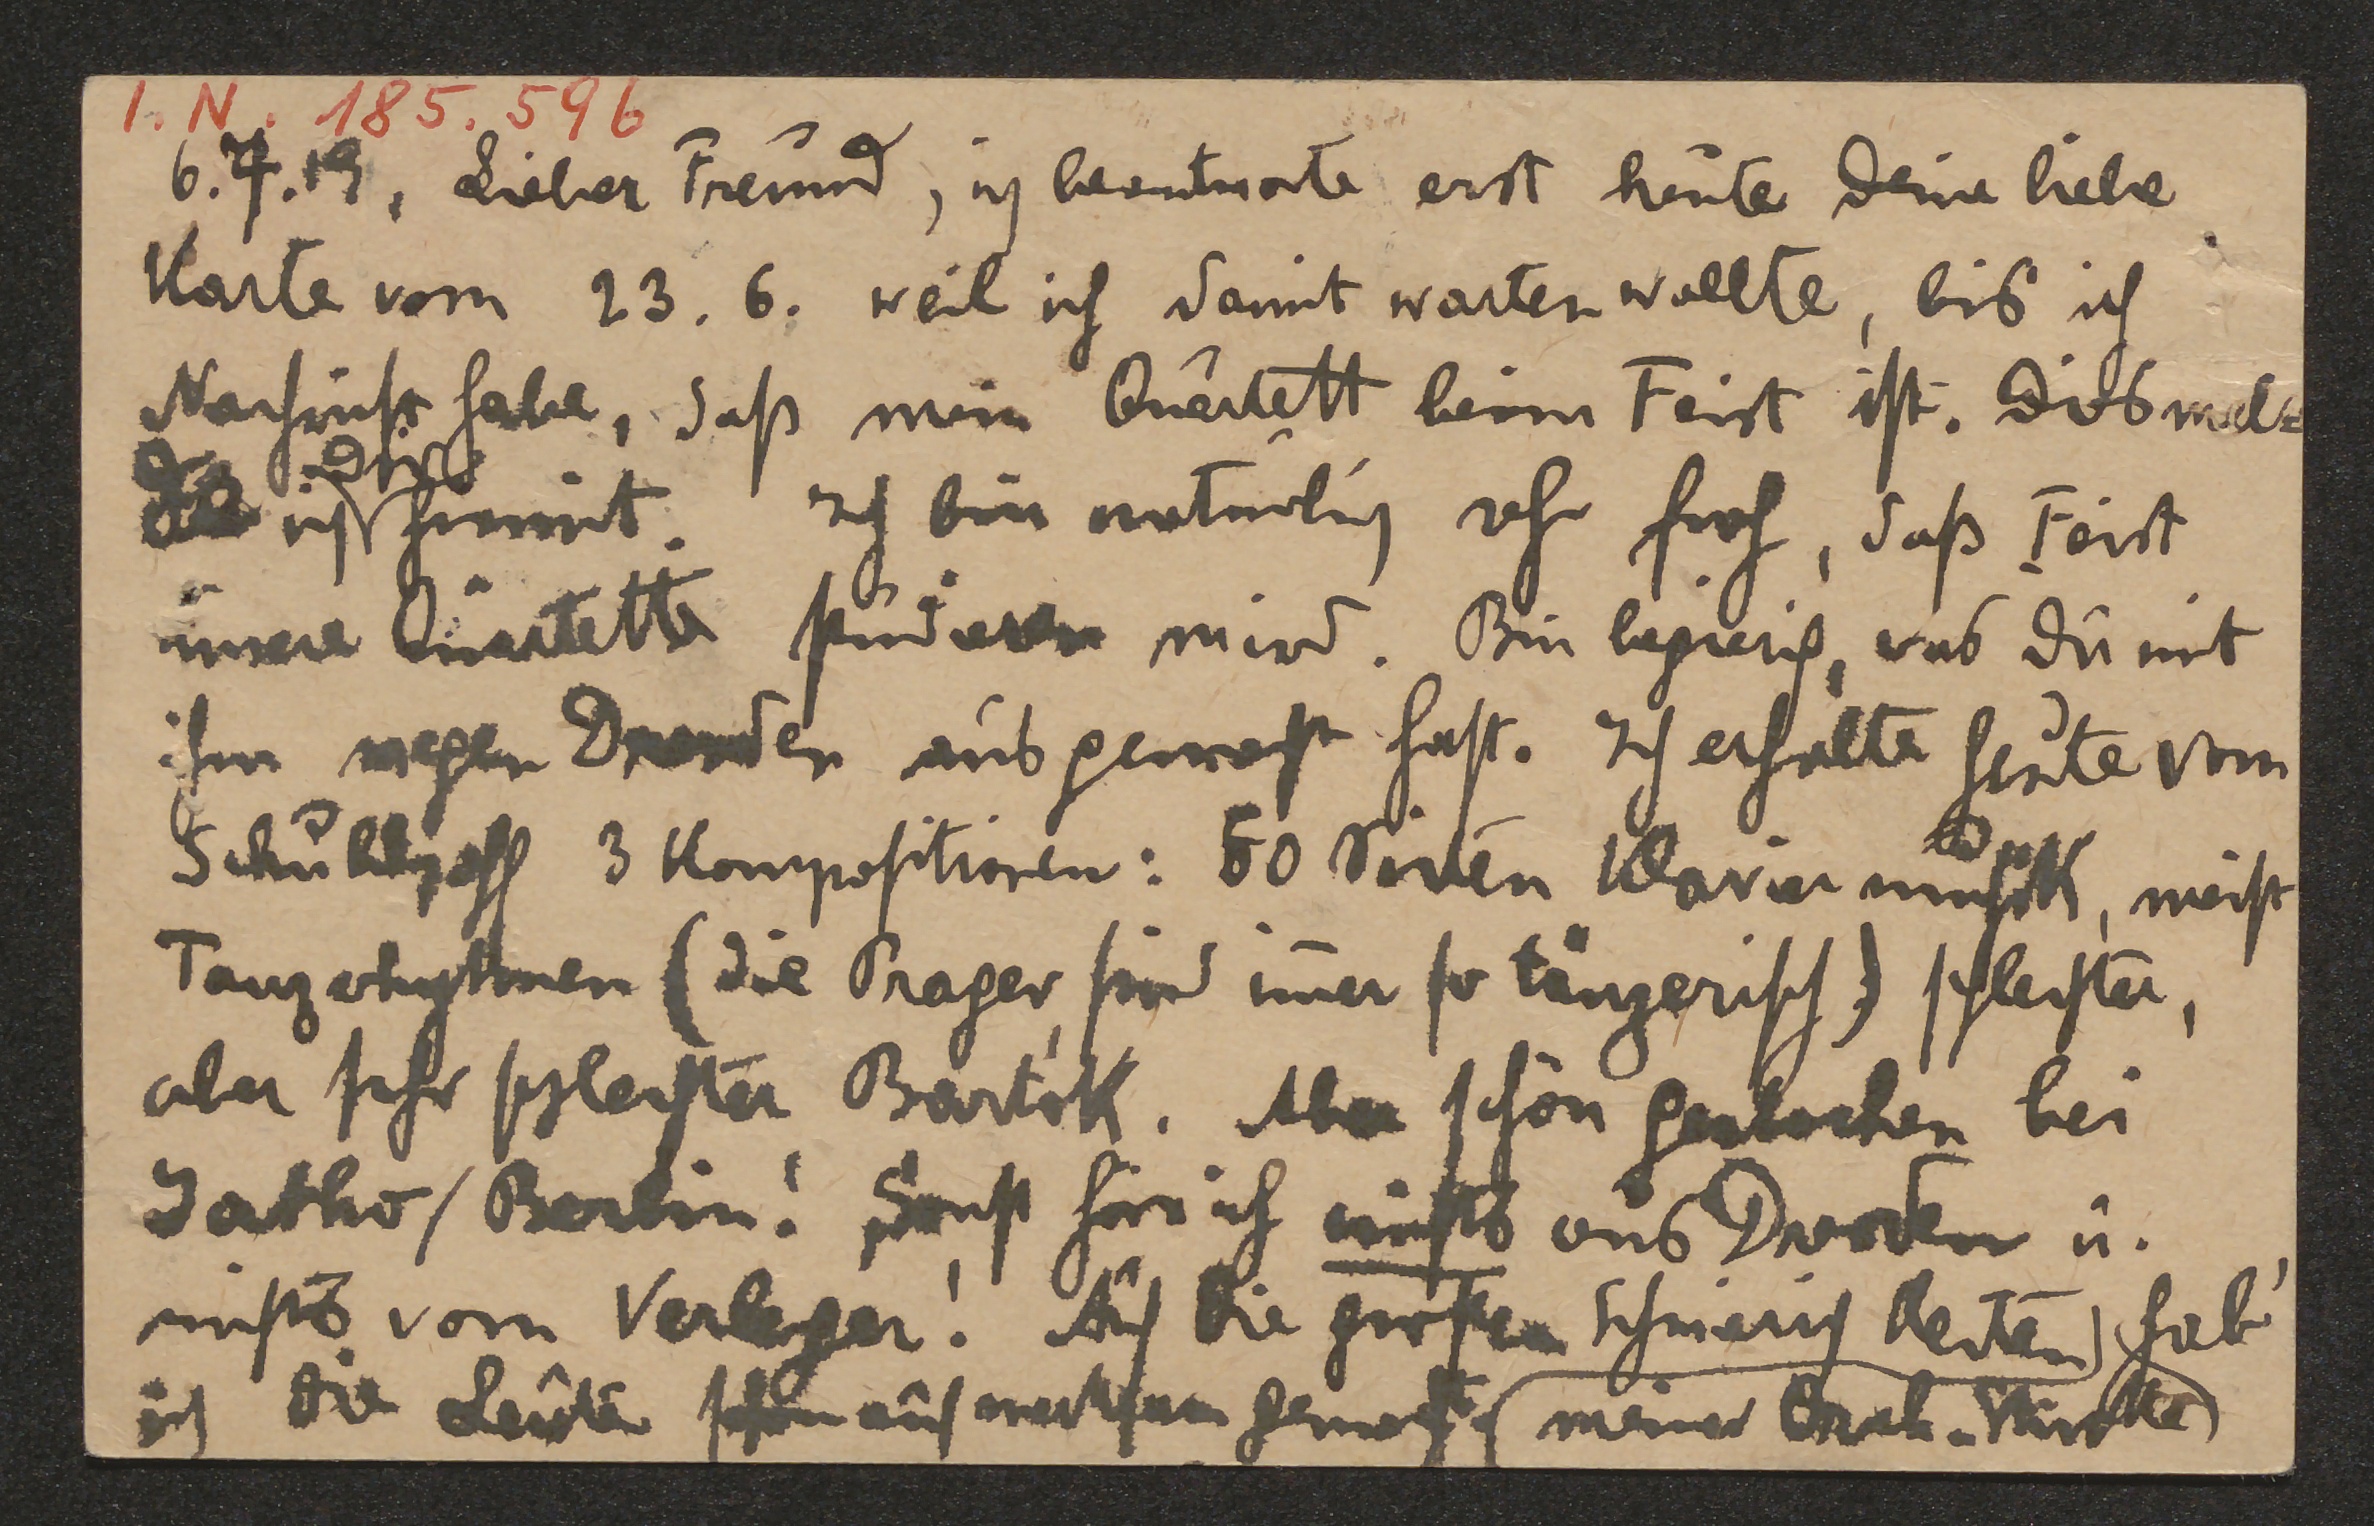 I.N. 185.596
6.7.19, Lieber Freund, ich beantworte erst heute Deine liebe
Karte vom 23. 6. weil ich damit warten wollte, bis ich
Nachricht habe, daß mein Quartett beim Feist ist. Dies melde
ich Dir hiemit. Ich bin natürlich sehr froh, daß Feist
unsere Quartette studieren wird. Bin begierig, was Du mit
ihm wegen Dresden ausgemacht hast. Ich erhalte heute vom
Schulhoff 3 Kompositionen: 50 Seiten Klaviermusik, meist
Tanzrhythmen (die Prager sind immer so tänzerisch) schlechter,
aber sehr schlechter Bartók. Aber schön gestochen bei
Jatho/Berlin! Sonst höre ich nichts aus Dresden u.
nichts vom Verleger! Auf die großen Schwierigkeiten hab'
ich die Leute schon aufmerksam gemacht (meiner Orch. Stücke)